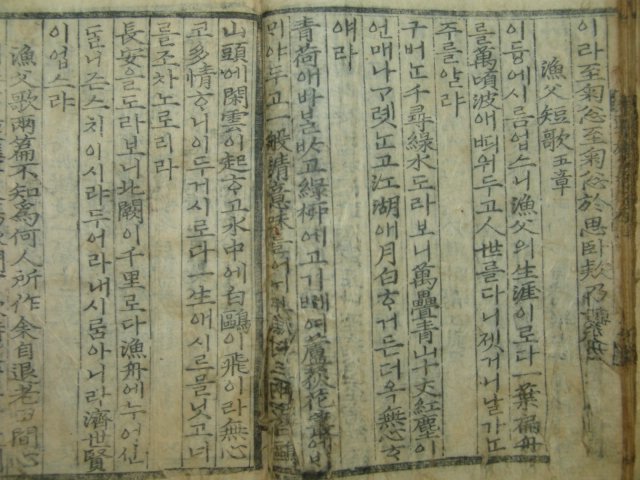 이라至匊忩至匊忩於思臥欸乃
漁父短歌五章
이듕에시름업스니漁父의生涯이로다一葉扁舟
를萬頃波애띄워두고人世를다니젯거니날가ᄂᆞᆫ
주를알랴
구버ᄂᆞᆫ千尋綠水도라보니萬疊靑山十丈紅塵이
언매나ᄀᆞ렛ᄂᆞᆫ고江湖애月白ᄒᆞ거든더옥無心ᄒᆞ
얘라
靑荷애바블ᄡᆞ고綠柳에고기ᄢᅦ여蘆荻花叢애
ᄆᆡ야두고一般淸意味
山頭에閑雲이起ᄒᆞ고水中에白鷗이飛이라無心
코多情ᄒᆞ니이두거시로다一生애시르믈닛고너
를조차노로리라
長安을도라보니北闕이千里로다漁舟에누어신
ᄃᆞᆯ니즌스치이시랴두어라내시름아니라濟世賢
이업스랴
漁父歌兩篇不知爲何人所作余自退老田間心